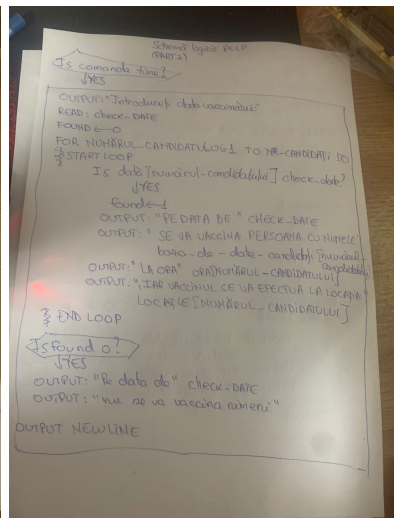 Schemă logică PCLP
(PART 2)
Is comanda time?
↓YES
OUTPUT: "Introduceți data vaccinării"
READ: check-DATE
FOUND ← 0
FOR NUMĂRUL_CANDIDATULUI ← 1 TO NR-CANDIDAȚI DO
START LOOP
Is data[numărul-candidatului] check-date?
↓YES
found ← 1
OUTPUT: "PE DATA DE" CHECK_DATE
OUTPUT: "SE VA VACCINA PERSOANA CU NUMELE"
baza-de-date-candidați[numărul
candidatului]
OUTPUT: "LA ORA" ORA[NUMĂRUL-CANDIDATULUI]
OUTPUT: "IAR VACCINUL SE VA EFECTUA LA LOCAȚIA"
LOCAȚIE[NUMĂRUL_CANDIDATULUI]
} END LOOP
Is found 0?
↓YES
OUTPUT: "Pe data de" check-DATE
OUTPUT: "nu se va vaccina nimeni"
OUTPUT NEWLINE